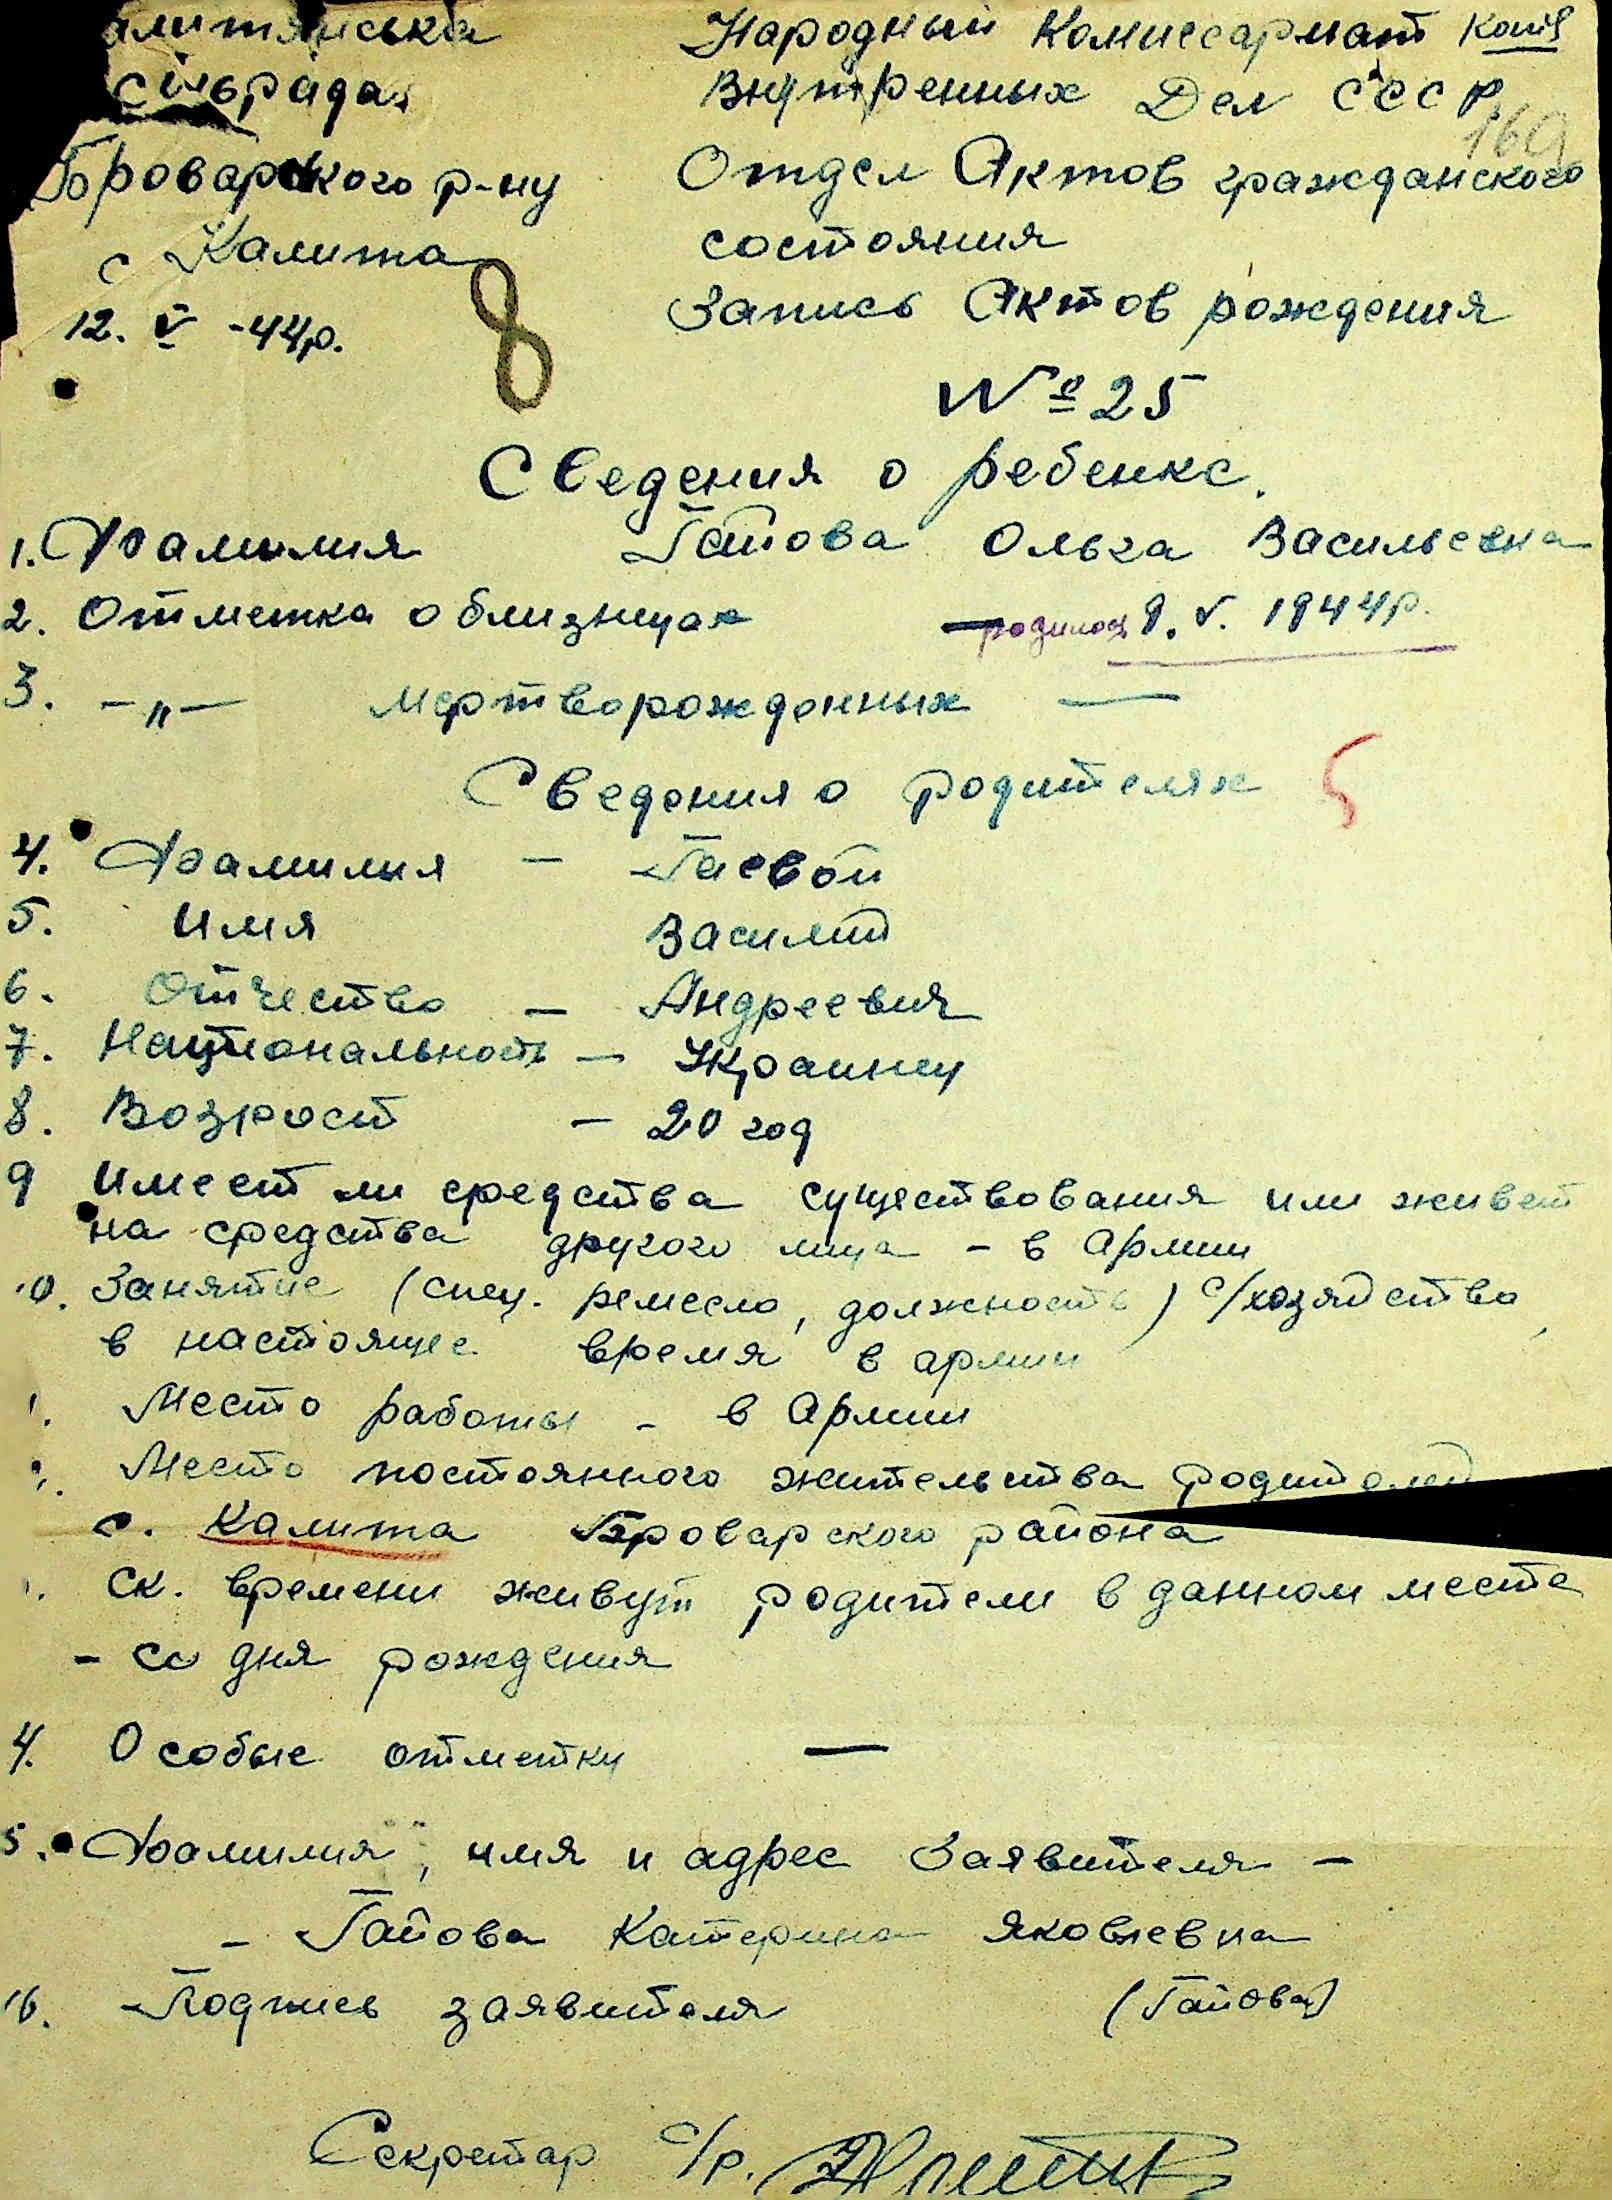 алитянська
сільрада
Броварського р-ну
с Калита
12. V -44р.
8
Народный Комиссариат
Внутренных Дел СССР
169
Отдел Актов гражданского
состояния
Запись Актов рождения
№ 25
Сведения о ребенке.
1. Фамилия Гайова Ольга Васильевна
2. Отметка о близнецах родилась 9. V. 1944р.
3. —„— мертворожденных —
Сведения о родителях
4. Фамилия — Гаевой
5. Имя Василий
6. Отчество — Андреевич
7. Национальность — Украинец
8. Возрост — 20 год
9 Имеет ли средства существования или живет
на средства другого лица — в Армии
10. Занятие (спец. ремесло, должность) с/хозяйство,
в настоящее время в армии
Место работы - в Армии
Место постоянного жительства родителей
с. Калита Броварского района
ск. времени живут родители в данном месте
- со дня рождения
4. Особые отметки —
5. Фамилия, имя и адрес Заявителя —
- Гайова Катерина Яковлевна
16. Подпись заявителя (Гайова)
Секретар с/р.